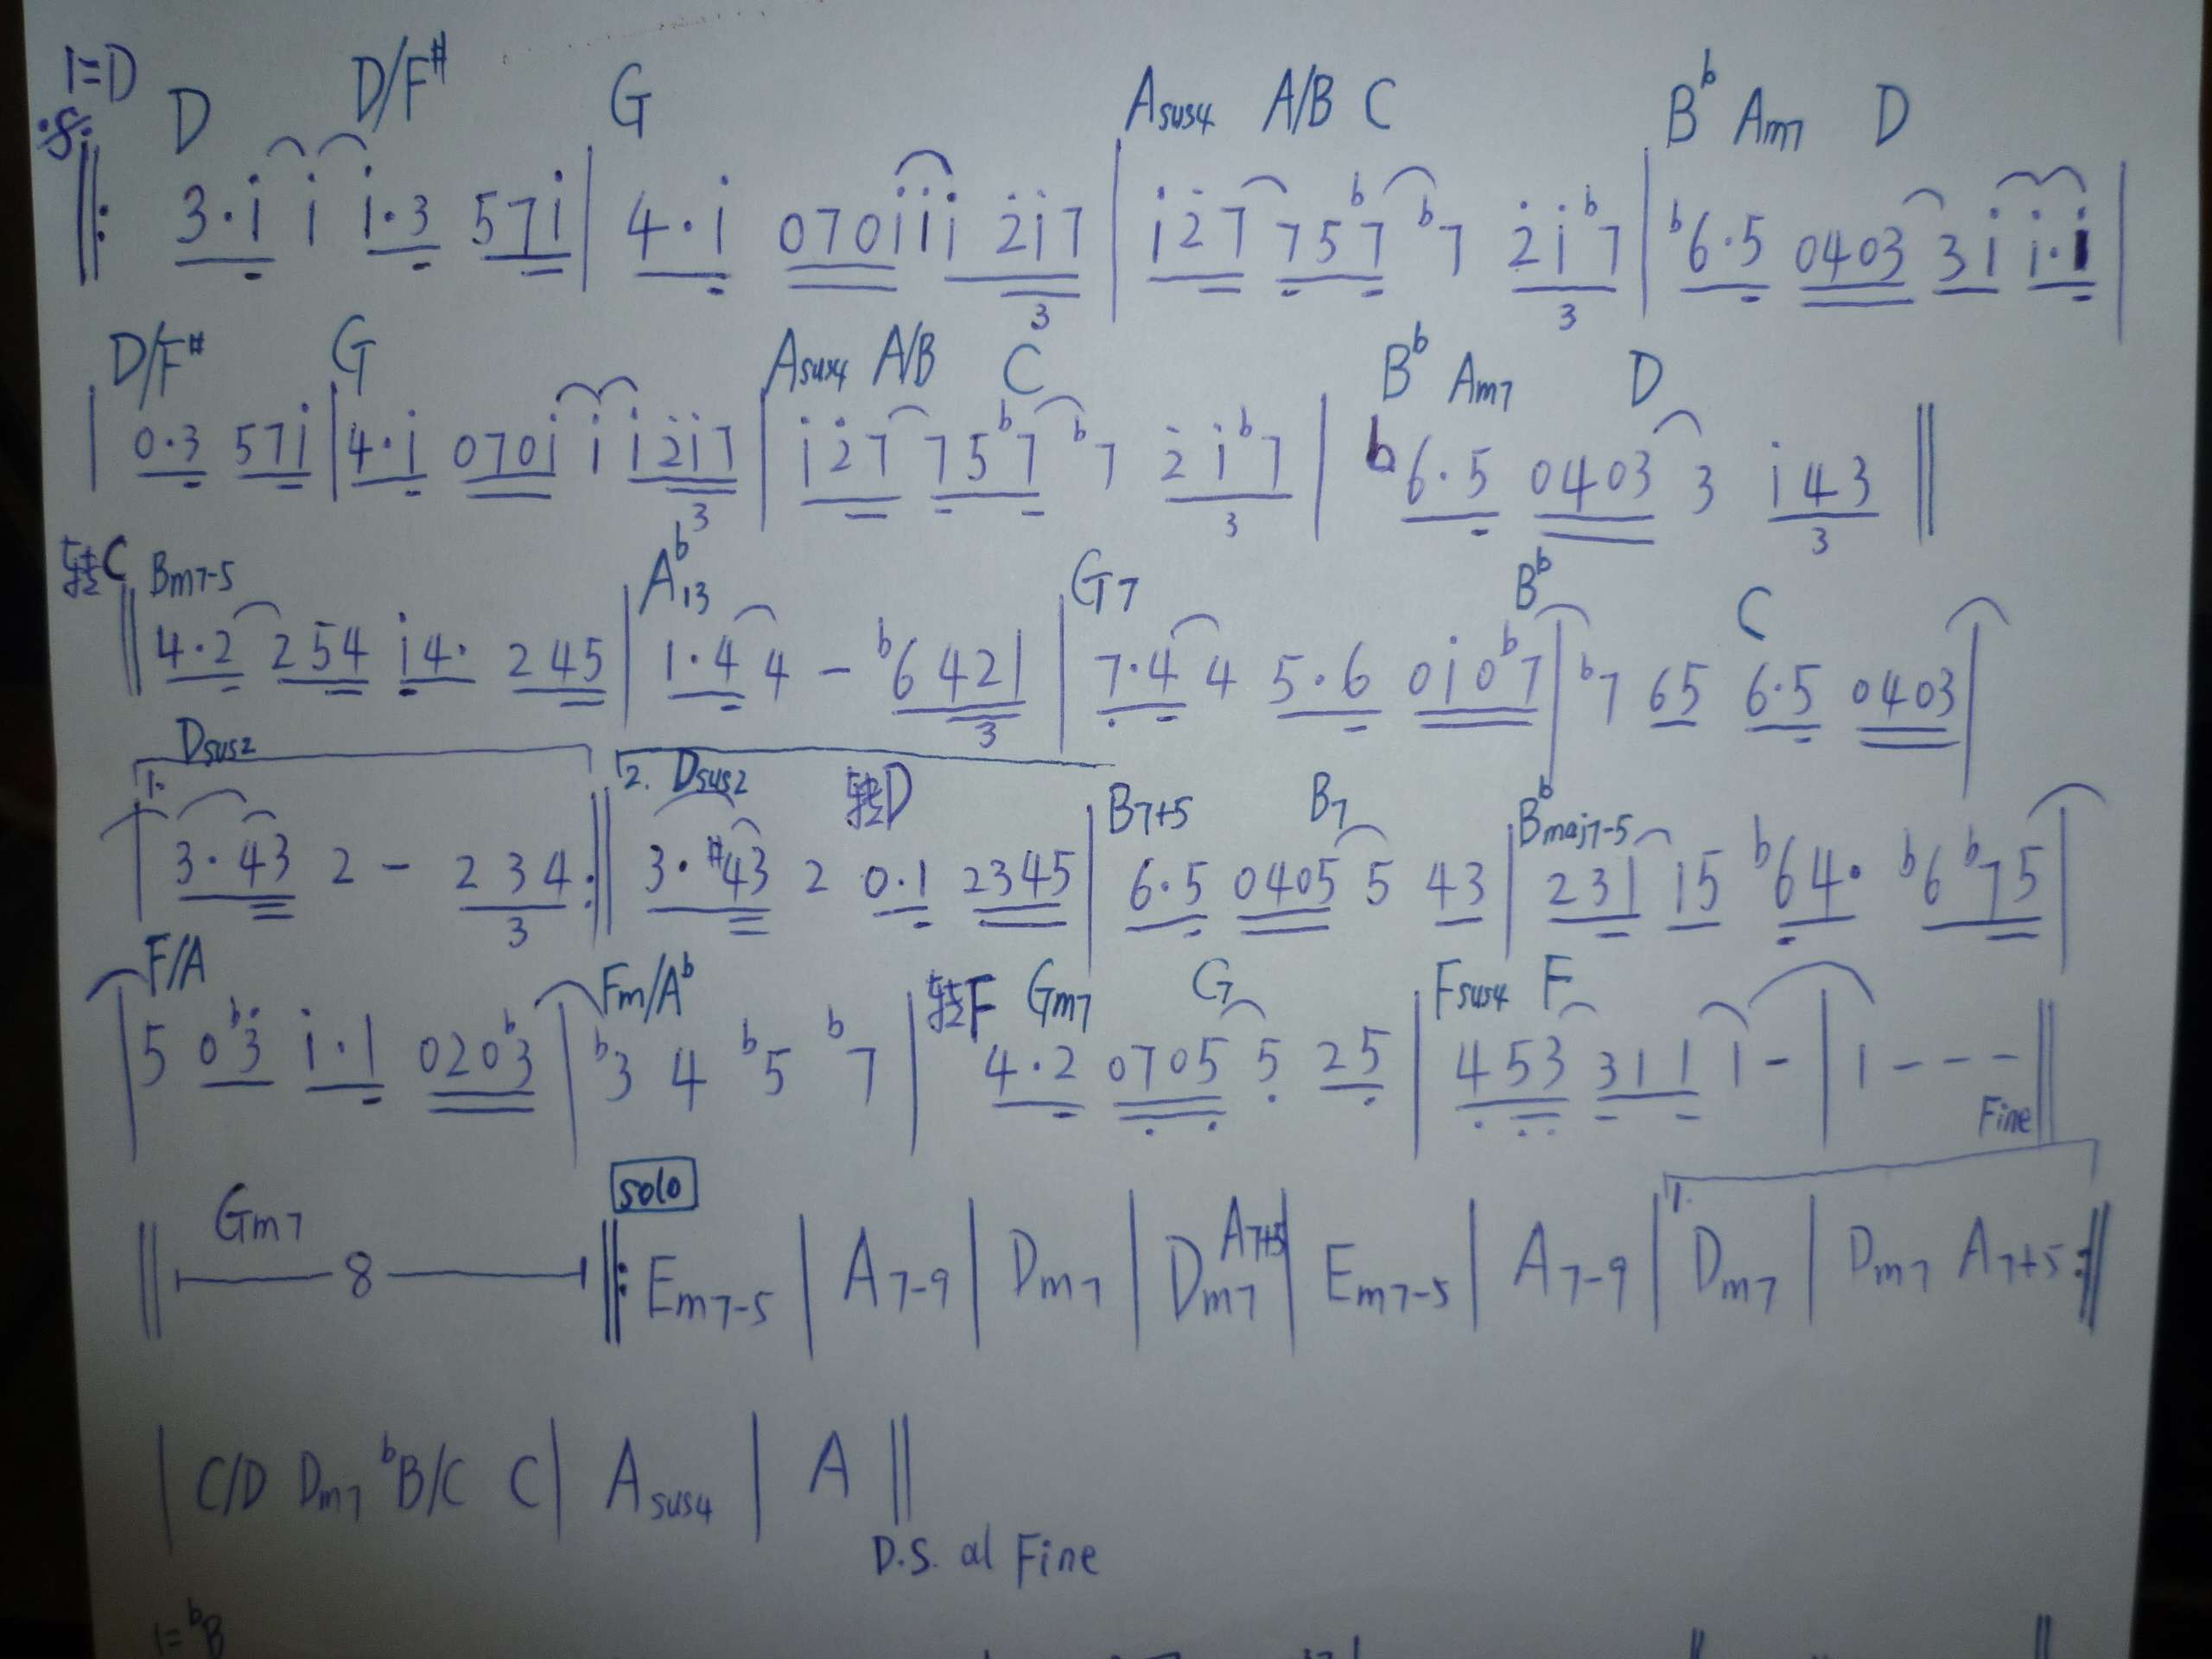 1=D
D D/F# G Asus4 A/B C Bb Am7 D
‖: 3·i i i·3 57i | 4·i 070iii 2i7 3 | i27 75b7 b7 2ib7 3 | b6·5 0403 3i i·i |
D/F# G Asus4 A/B C Bb Am7 D
| 0·3 57i | 4·i 070i i i2i7 3 | i27 75b7 b7 2ib7 3 | b6·5 0403 3 i43 3 ‖
转C Bm7-5 Ab13 G7 Bb C
‖ 4·2 254 i4· 245 | 1·4 4 - b6421 3 | 7·4 4 5·6 0i0b7 | b7 65 6·5 0403 |
1. Dsus2 2. Dsus2 转D B7+5 B7 Bbmaj7-5
| 3·43 2 - 234 3 :‖ 3·#43 2 0·1 2345 | 6·5 0405 5 43 | 231 15 b64· b6b75 |
F/A Fm/Ab 转F Gm7 G Fsus4 F
| 5 0b3 i·1 020b3 | b3 4 b5 b7 | 4·2 0705 5 25 | 453 311 1 - | 1 - - - ‖
Fine
Gm7 solo
‖ 8 ‖: Em7-5 | A7-9 | Dm7 | Dm7 A7+5 | Em7-5 | A7-9 | 1. Dm7 | Dm7 A7+5 :‖
| C/D Dm7 bB/C C | Asus4 | A ‖
D.S. al Fine
1=bB